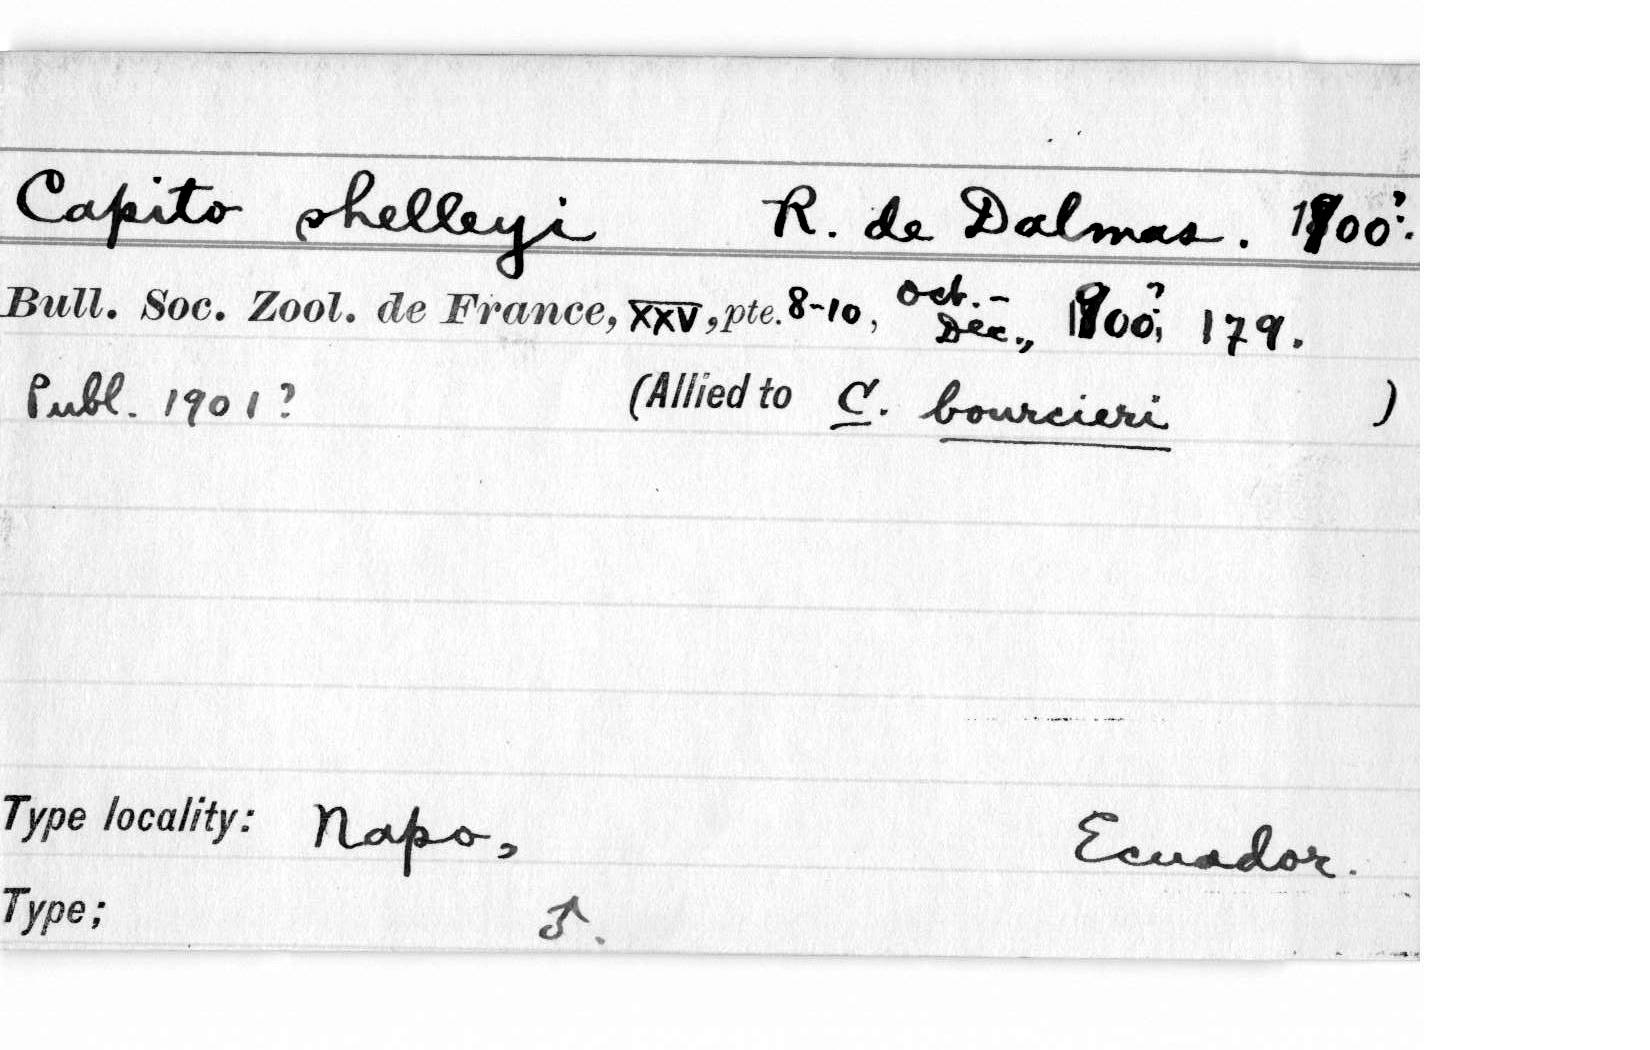 Capito shelleyi R. de Dalmas. 1900?.
Bull. Soc. Zool. de France, XXV, pte. 8-10, Oct.- Dec., 1900?, 179.
Publ. 1901? (Allied to C. bourcieri )
Type locality: Napo, Ecuador.
Type; ♂.